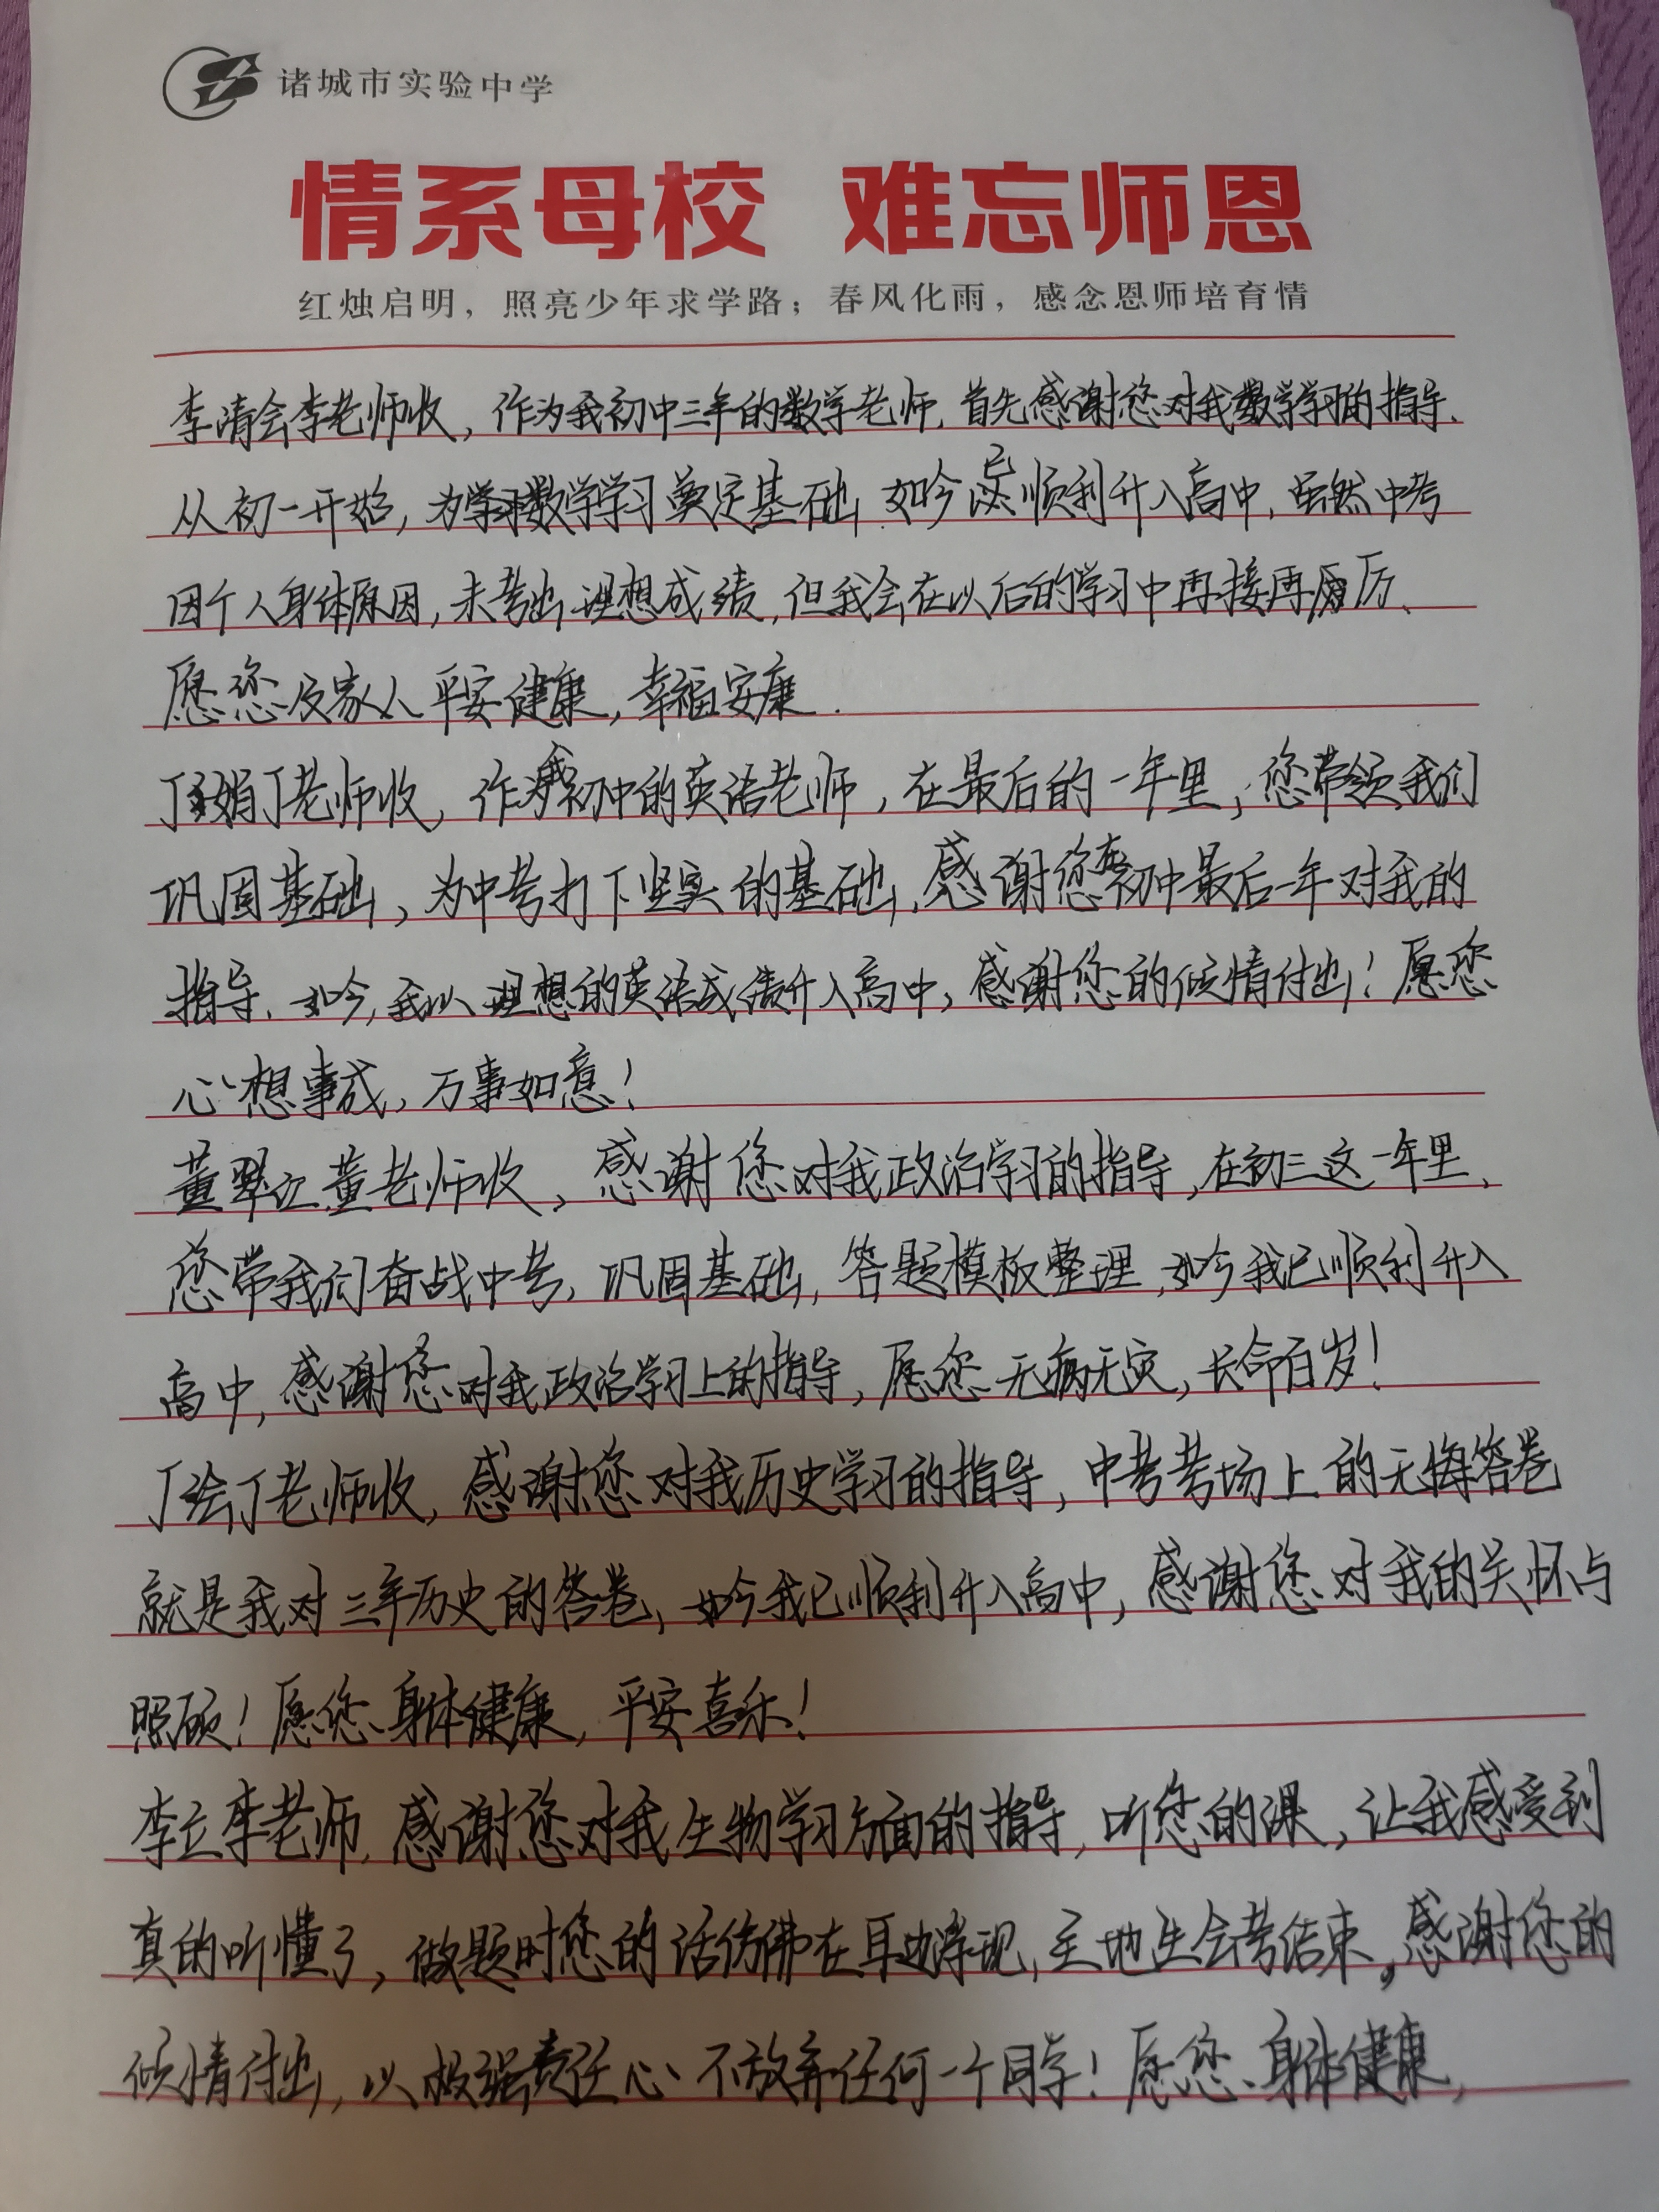 诸城市实验中学
情系母校 难忘师恩
红烛启明，照亮少年求学路；春风化雨，感念恩师培育情
李清会李老师收，作为我初中三年的数学老师，首先感谢您对我数学学习的指导、
从初一开始，为数学学习奠定基础，如今已顺利升入高中，虽然中考
因个人身体原因，未考出理想成绩，但我会在以后的学习中再接再厉、
愿您及家人平安健康，幸福安康.
丁娟丁老师收，作为我初中的英语老师，在最后的一年里，您带领我们
巩固基础，为中考打下坚实的基础，感谢您在初中最后一年对我的
指导、如今，我以理想的英语成绩升入高中，感谢您的倾情付出！愿您
心想事成，万事如意！
董翠立董老师收，感谢您对我政治学习的指导，在初三这一年里、
您带我们奋战中考，巩固基础，答题模板整理，如今我已顺利升入
高中，感谢您对我政治学习上的指导，愿您无病无灾，长命百岁！
丁绘丁老师收，感谢您对我历史学习的指导，中考考场上的无悔答卷
就是我对三年历史的答卷，如今我已顺利升入高中，感谢您对我的关怀与
照顾！愿您身体健康，平安喜乐！
李立李老师，感谢您对我生物学习方面的指导，听您的课，让我感受到
真的听懂了，做题时您的话仿佛在耳边浮现，至地生会考结束，感谢您的
倾情付出，以极强责任心不放弃任何一个同学！愿您身体健康，